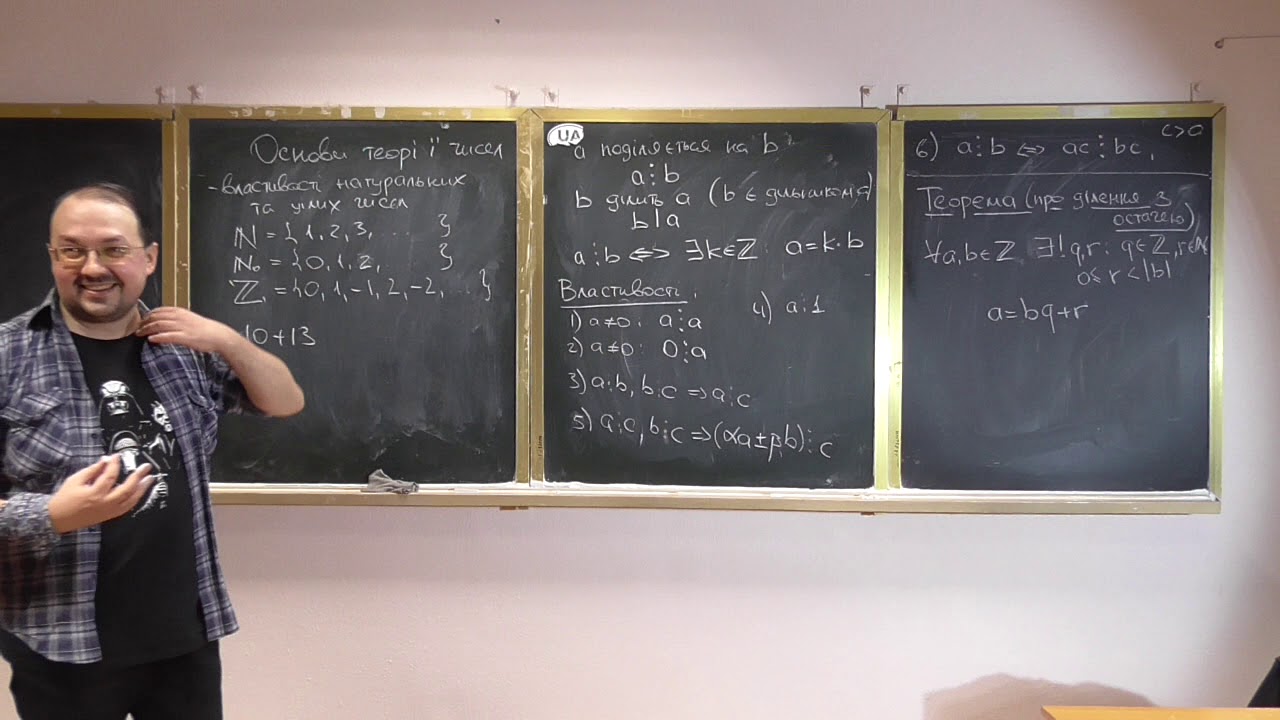 Основи теорії чисел
- властивості натуральних
та цілих чисел
ℕ = {1, 2, 3, ... }
ℕ₀ = {0, 1, 2, }
ℤ = {0, 1, -1, 2, -2, ... }
10+13
UA
a поділяється на b
a⋮b
b ділить a (b є дільником a)
b|a
a⋮b ⇔ ∃k∈ℤ: a=k·b
Властивості
1) a≠0: a⋮a
4) a⋮1
2) a≠0: 0⋮a
3) a⋮b, b⋮c ⇒ a⋮c
5) a⋮c, b⋮c ⇒ (αa±βb)⋮c
c>0
6) a⋮b ⇔ ac⋮bc,
Теорема (про ділення з
остачею)
∀a,b∈ℤ ∃! q,r: q∈ℤ, r∈ℕ
0≤r<|b|
a=bq+r